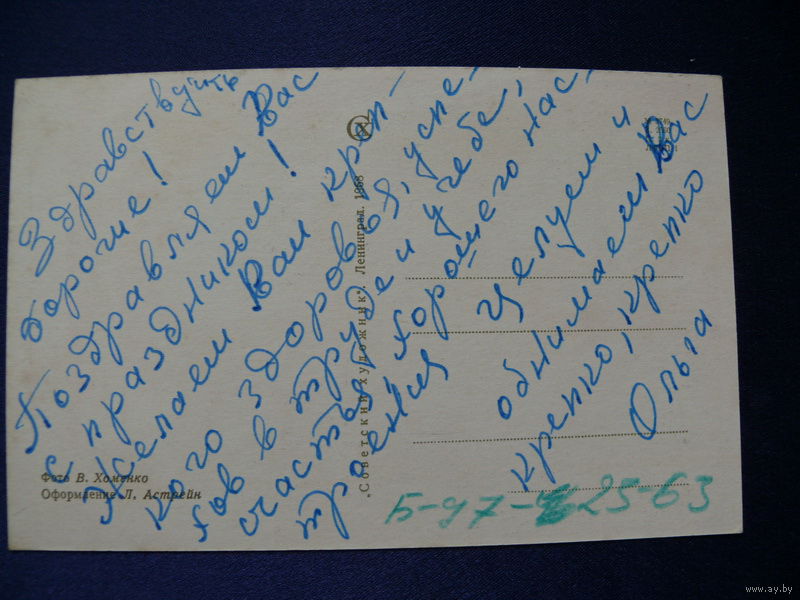 Здравствуйте
дорогие!
Поздравляем Вас
с праздником!
Желаем Вам креп-
кого здоровья, успе-
хов в труде и учебе,
счастья, хорошего нас-
троения
Целуем и
обнимаем Вас
крепко, крепко
Ольга
Фото В. Хоменко
Оформление Л. Астрейн
„Советский художник". Ленинград. 1968
25-63
www.ay.by